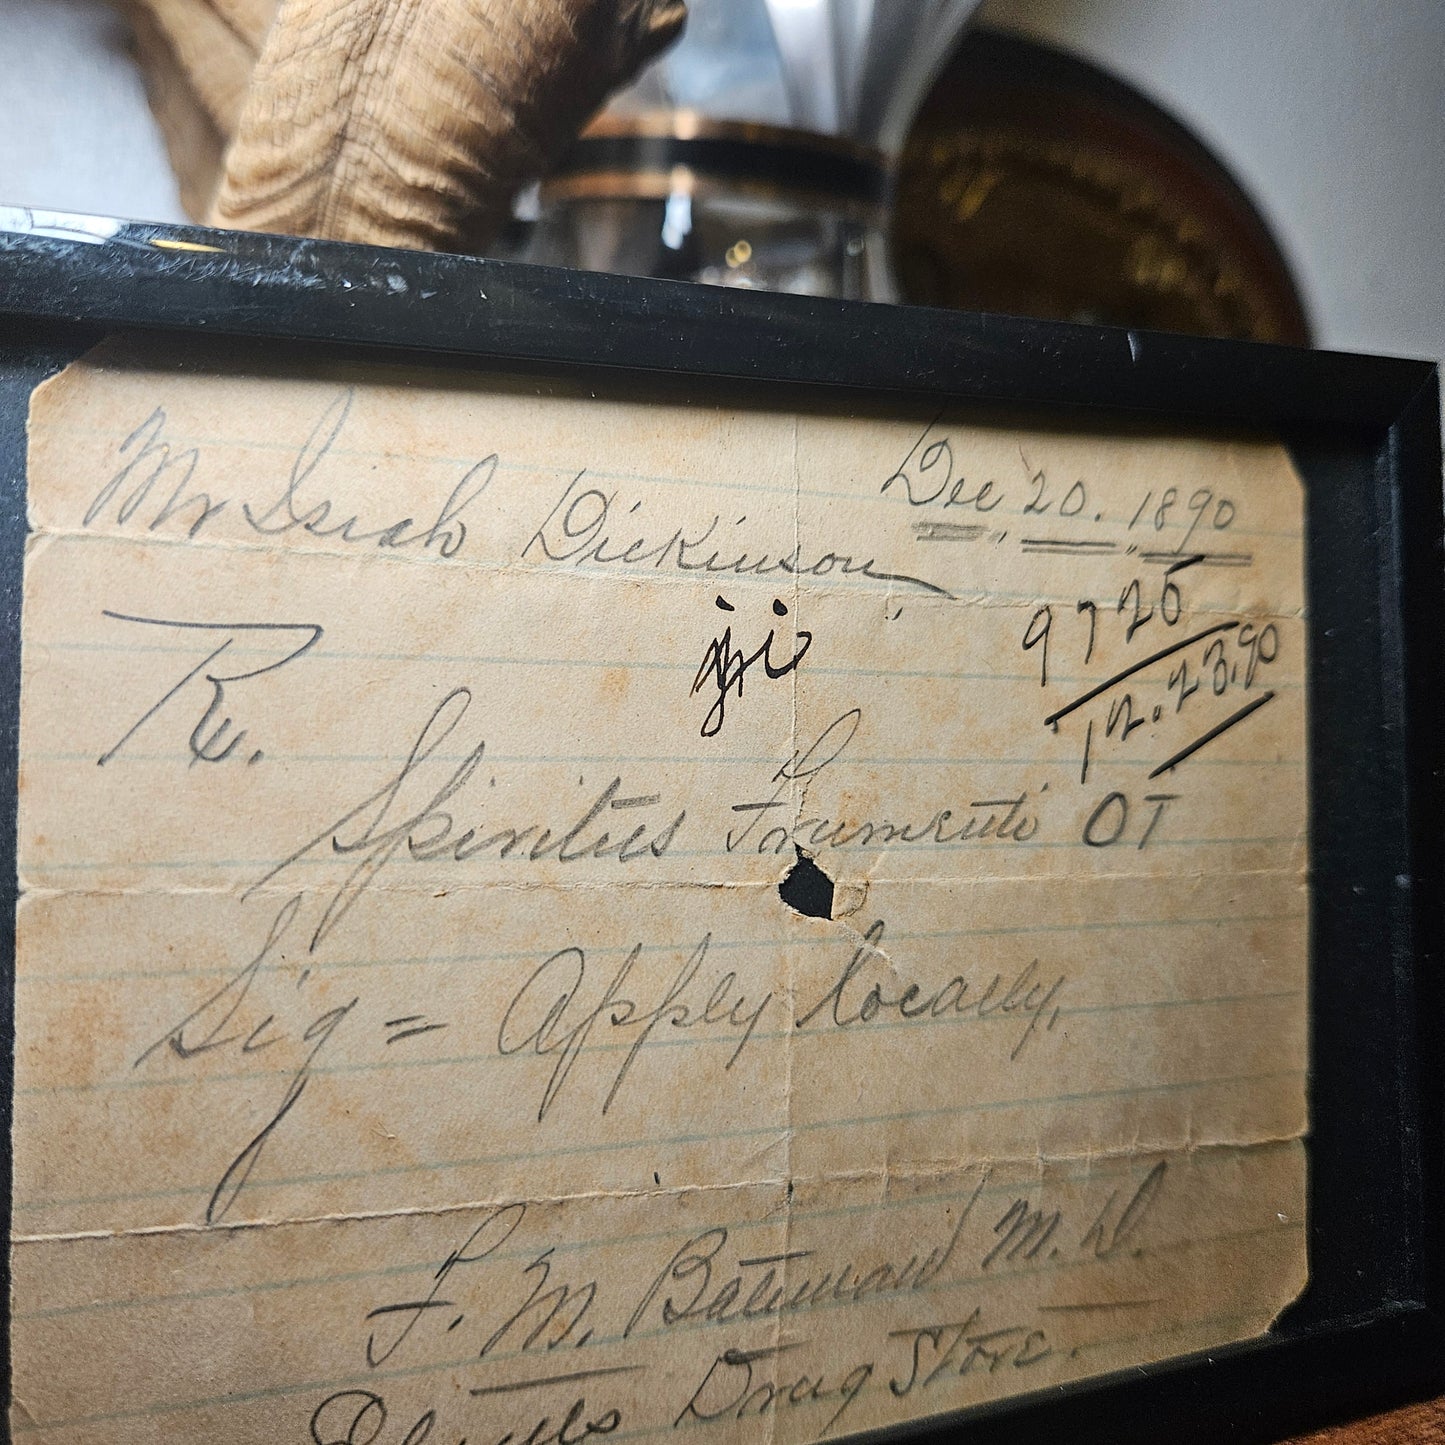 Mr Isiah Dickinson
Dec 20. 1890
9725
12.23.90
Rx.
Spiritus Frumenti
Sig = Apply locally,
F. M. Bateman M. D.
Drug Store.